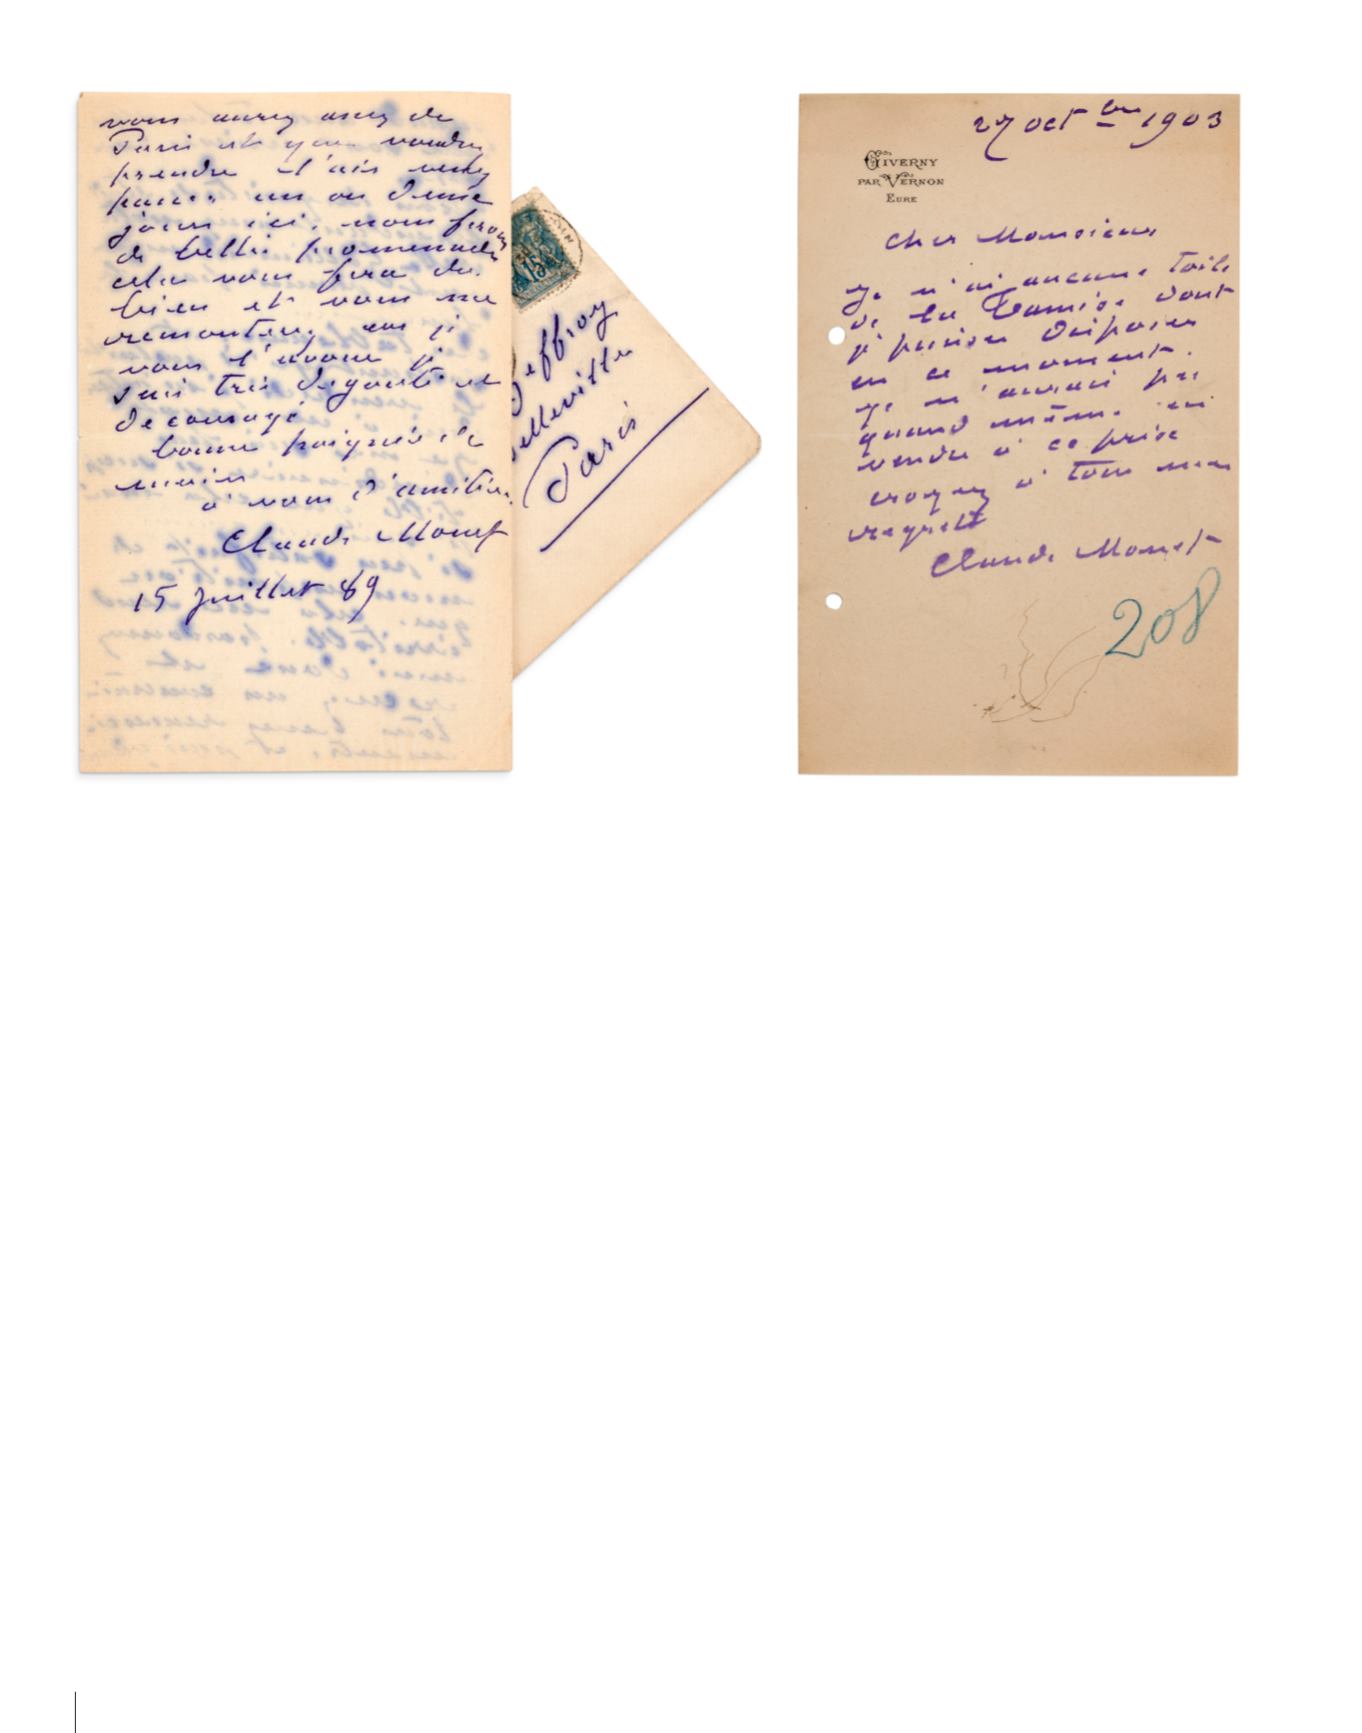 vous aurez assez de
Paris et que voudrez
prendre l'air venez
passer un ou deux
jours ici, nous ferons
de belles promenades
cela vous fera du
bien et vous me
remontera, car je
vous l'avoue je
suis très dégouté et
découragé
bonne poignée de
main
à vous d'amitié.
Claude Monet
15 juillet 89
15
Geffroy
Belleville
Paris
27 oct bre 1903
GIVERNY
PAR VERNON
EURE
Cher Monsieur
Je n'ai aucune toile
de la Tamise dont
je puisse disposer
en ce moment.
je n'aurai pu
quand même en
vendre à ce prix
croyez à tous mes
regrets
Claude Monet
208